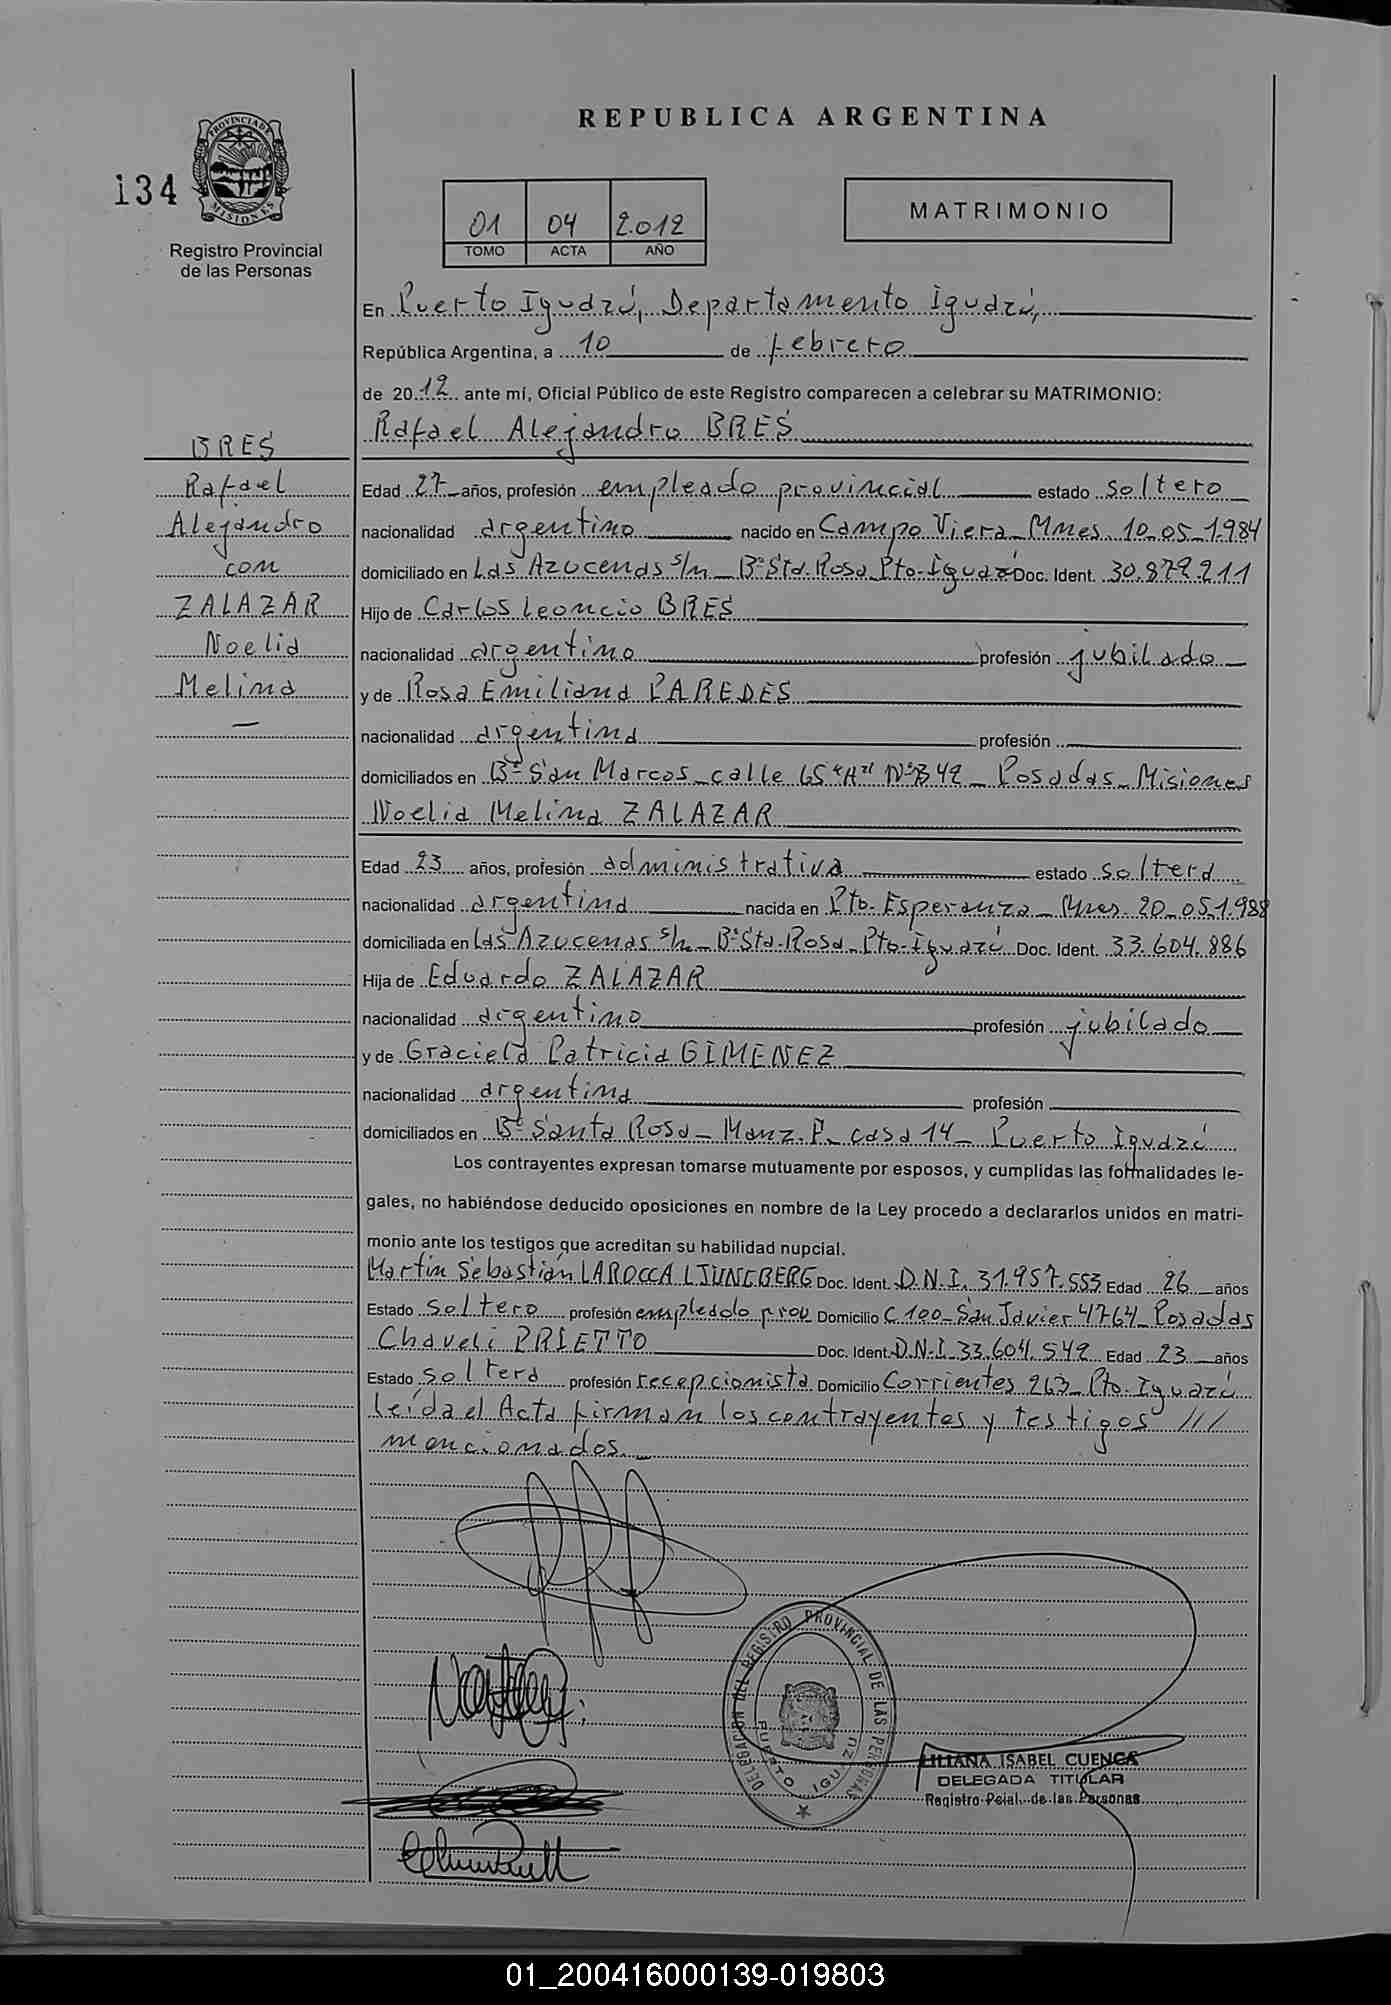 REPUBLICA ARGENTINA
134
PROVINCIA DE MISIONES
Registro Provincial
de las Personas
01 04 2.012
TOMO ACTA AÑO
MATRIMONIO
En Puerto Iguazú, Departamento Iguazú,
República Argentina, a 10 de febrero
de 2012 ante mí, Oficial Público de este Registro comparecen a celebrar su MATRIMONIO:
Rafael Alejandro BRES
BRES
Rafael
Alejandro
con
ZALAZAR
Noelia
Melina
Edad 27 años, profesión empleado provincial estado soltero
nacionalidad argentino nacido en Campo Viera - Mnes. 10-05-1.984
domiciliado en Las Azucenas s/n - Bº Sta. Rosa Pto. Iguazú Doc. Ident. 30.872.211
Hijo de Carlos Leoncio BRES
nacionalidad argentino profesión jubilado
y de Rosa Emiliana PAREDES
nacionalidad argentina profesión
domiciliados en Bº San Marcos - calle 65 "A" Nº 342 - Posadas - Misiones
Noelia Melina ZALAZAR
Edad 23 años, profesión administrativa estado soltera
nacionalidad argentina nacida en Pto. Esperanza - Mnes. 20-05-1.988
domiciliada en Las Azucenas s/n - Bº Sta. Rosa - Pto. Iguazú Doc. Ident. 33.604.886
Hija de Eduardo ZALAZAR
nacionalidad argentino profesión jubilado
y de Graciela Patricia GIMENEZ
nacionalidad argentina profesión
domiciliados en Bº Santa Rosa - Manz. P - casa 14 - Puerto Iguazú
Los contrayentes expresan tomarse mutuamente por esposos, y cumplidas las formalidades le-
gales, no habiéndose deducido oposiciones en nombre de la Ley procedo a declararlos unidos en matri-
monio ante los testigos que acreditan su habilidad nupcial.
Martín Sebastián LAROCCA LJUNGBERG Doc. Ident. D.N.I. 31.957.553 Edad 26 años
Estado soltero profesión empleado prov Domicilio C 100 - San Javier 4764 - Posadas
Chaveli PRIETTO Doc. Ident. D.N.I. 33.604.542 Edad 23 años
Estado soltera profesión recepcionista Domicilio Corrientes 263 - Pto. Iguazú
Leída el Acta firman los contrayentes y testigos ///
mencionados.
DELEGACION DEL REGISTRO PROVINCIAL DE LAS PERSONAS
PUERTO IGUAZU
LILIANA ISABEL CUENCA
DELEGADA TITULAR
Registro Pcial. de las Personas
01_200416000139-019803